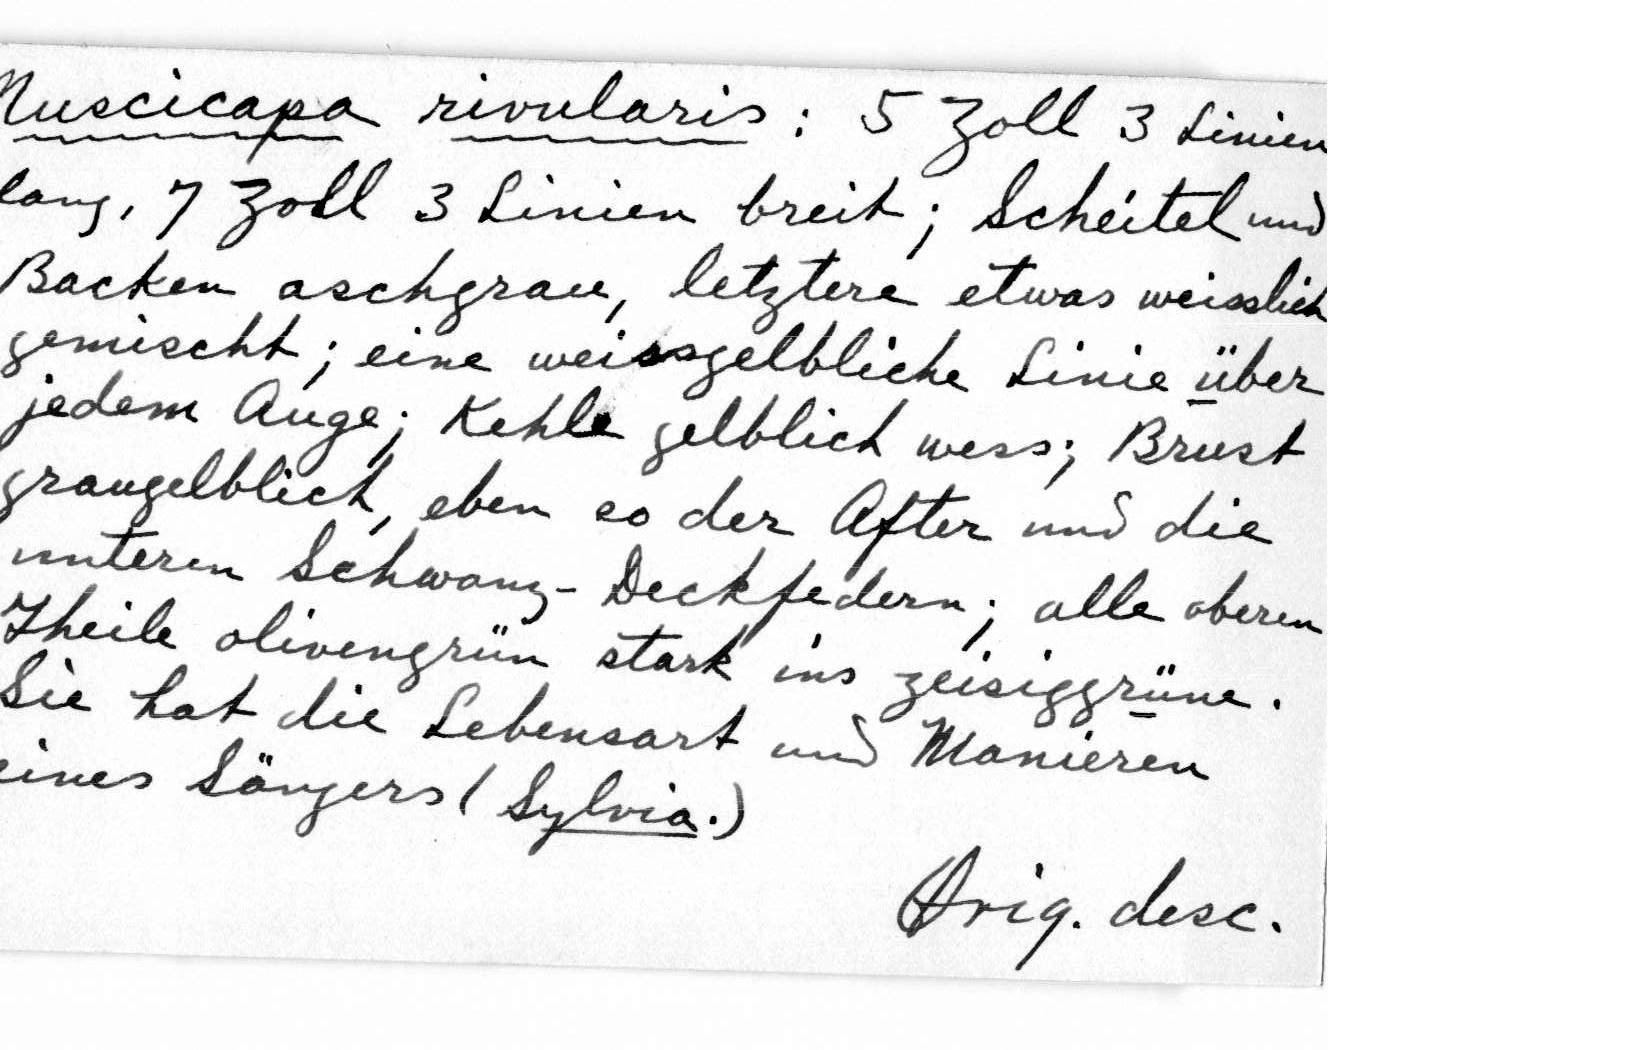 Muscicapa rivularis : 5 Zoll 3 Linien
lang, 7 Zoll 3 Linien breit; Scheitel und
Backen aschgrau, letztere etwas weisslich
gemischt; eine weissgelbliche Linie über
jedem Auge; Kehle gelblich wess; Brust
graugelblich, eben so der After und die
unteren Schwanz-Deckfedern; alle oberen
Theile olivengrün stark ins zeisiggrüne.
Sie hat die Lebensart und Manieren
eines Sängers (Sylvia.)
Orig. desc.